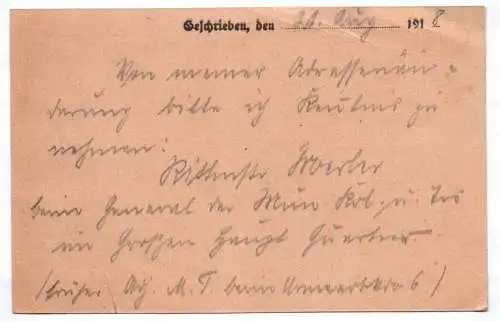 Geschrieben, den 21. Aug 1918
Von meiner Adressenän-
derung bitte ich Kentnis zu
nehmen:
Rittmstr
beim General der Mun Kol. u. Trs
im Großen Haupt Quartier
(früher Adj. M. T. beim 6)